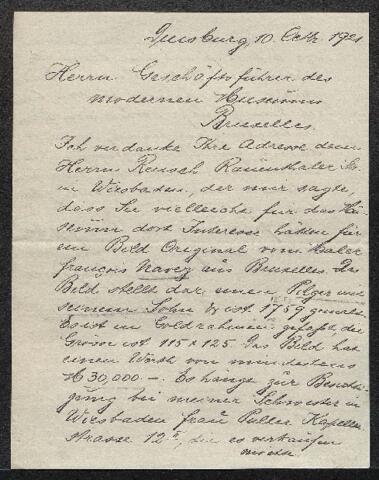 Duisburg, 10. Octb. 1921
Herrn Geschäftsführer des
modernen Museums
Bruxelles.
Ich verdanke Ihre Adresse dem
Herrn Rensch Rauenthaler
in Wiesbaden, der mir sagte,
dass Sie vielleicht für das Mu-
seum dort Interesse hätten für
ein Bild Original vom Maler
françois Navez aus Bruxelles. Das
Bild stellt dar einen Pilger und
seinem Sohn & ist 1759 gemalt
Es ist in Goldrahmen gefasst, die
Grösse ist 115 x 125. Das Bild hat
einen Werth von mindestens
M 30,000.-. Es hängt zur Besichti-
gung bei meiner Schwester in
Wiesbaden frau Puller Kapellen
strasse 12, die es verkaufen